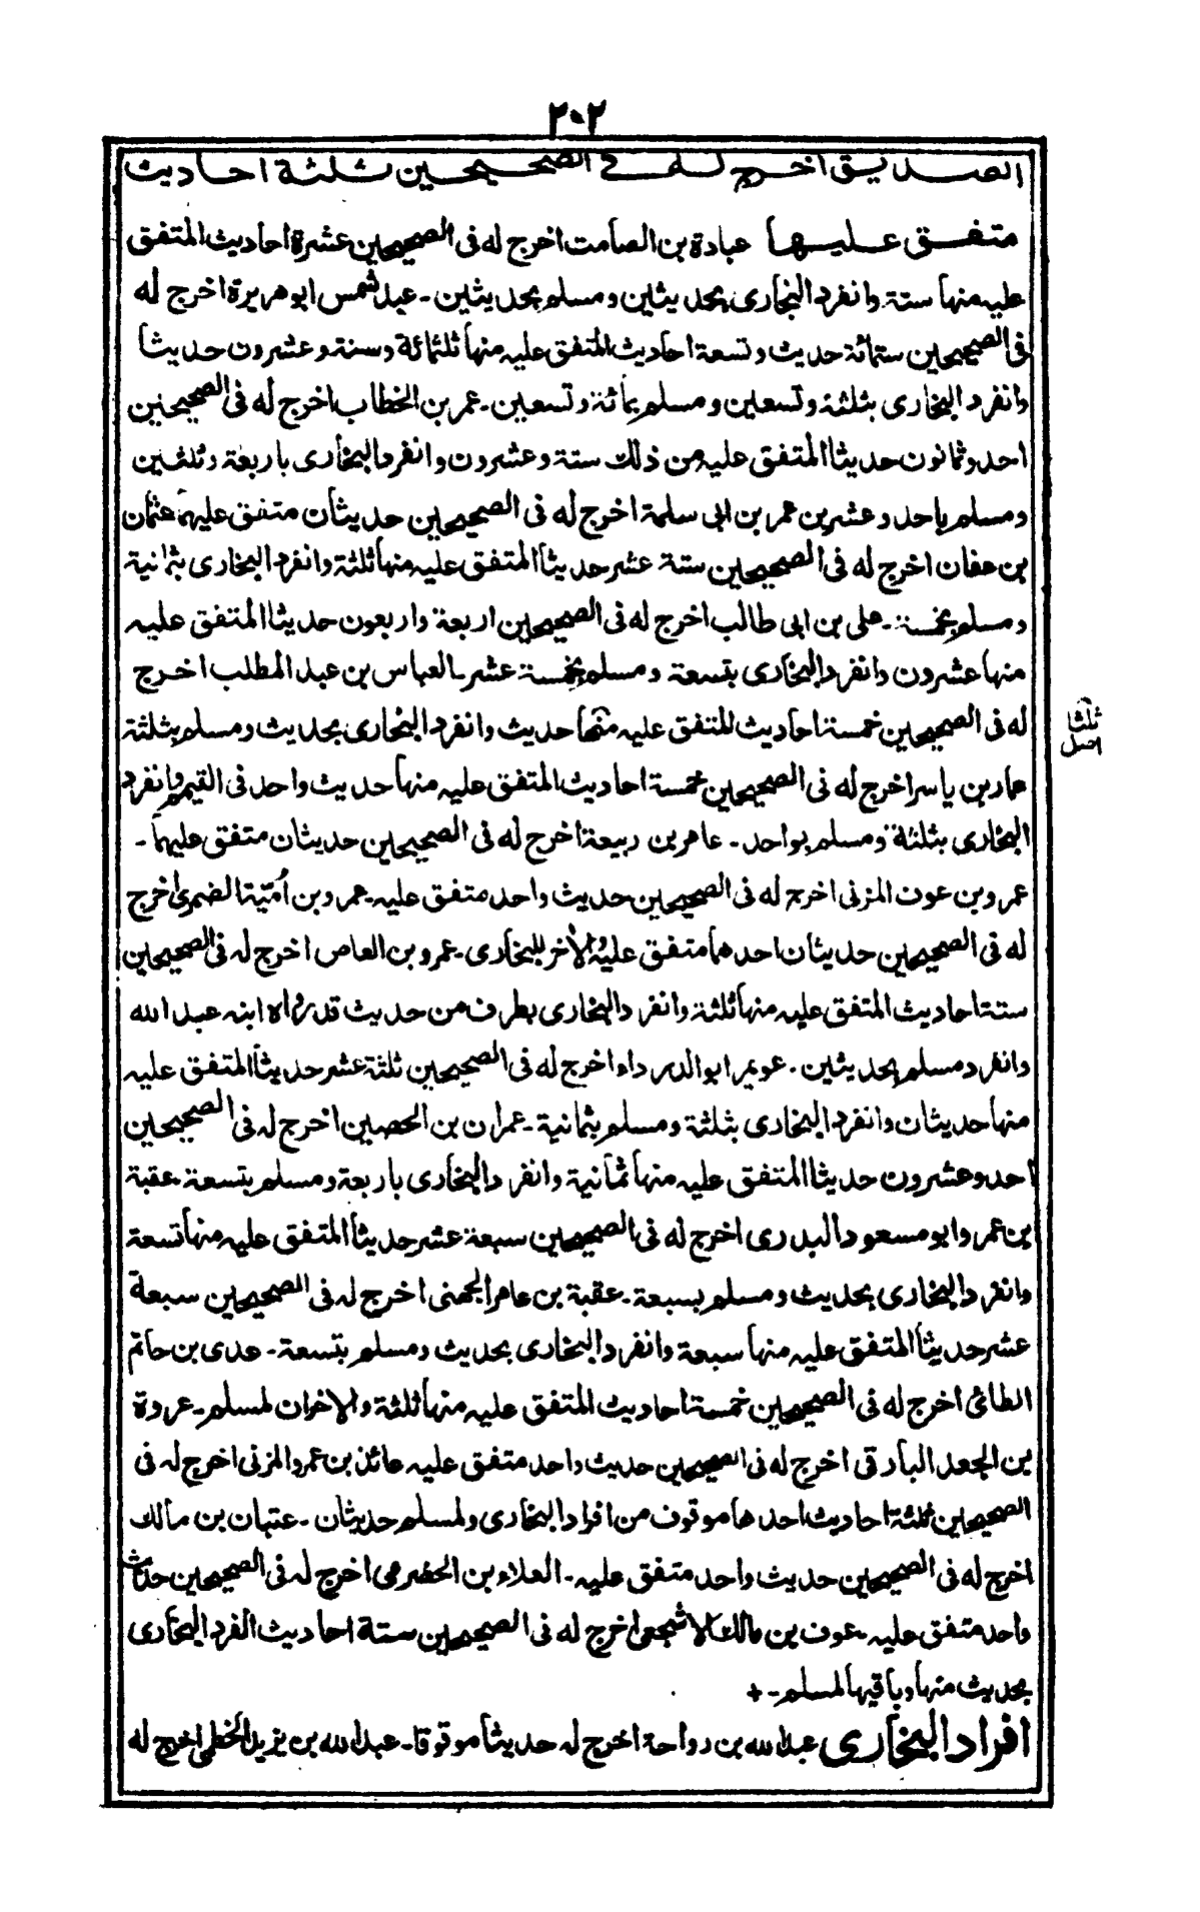 ٢٠٢
الصديق اخرج له فى الصحيحين ثلثة احاديث
متفق عليها عبادة بن الصامت اخرج له فى الصحيحين عشرة احاديث المتفق
عليه منها ستة وانفرد البخارى بحديثين ومسلم بحديثين ـ عبد شمس ابو هريرة اخرج له
فى الصحيحين ستمائة حديث وتسعة احاديث المتفق عليه منها ثلثمائة وستة وعشرون حديثا
وانفرد البخارى بثلثة وتسعين ومسلم بمائة وتسعين ـ عمر بن الخطاب اخرج له فى الصحيحين
احد وثمانون حديثا المتفق عليه من ذلك ستة وعشرون وانفرد البخارى باربعة وثلثين
ومسلم باحد وعشرين عمر بن ابى سلمة اخرج له فى الصحيحين حديثان متفق عليهما عثمان
بن عفان اخرج له فى الصحيحين ستة عشر حديثا المتفق عليه منها ثلثة وانفرد البخارى بثمانية
ومسلم بخمسة ـ على بن ابى طالب اخرج له فى الصحيحين اربعة واربعون حديثا المتفق عليه
منها عشرون وانفرد البخارى بتسعة ومسلم بخمسة عشر ـ العباس بن عبد المطلب اخرج
له فى الصحيحين خمسة احاديث المتفق عليه منها حديث وانفرد البخارى بحديث ومسلم بثلثة
ثلثا
اصل
عمار بن ياسر اخرج له فى الصحيحين خمسة احاديث المتفق عليه منها حديث واحد فى التيمم وانفرد
البخارى بثلثة ومسلم بواحد ـ عامر بن ربيعة اخرج له فى الصحيحين حديثان متفق عليهما ـ
عمرو بن عوف المزنى اخرج له فى الصحيحين حديث واحد متفق عليه ـ عمرو بن اُميّة الضمرى اخرج
له فى الصحيحين حديثان احدهما متفق عليه والاخر للبخارى ـ عمرو بن العاص اخرج له فى الصحيحين
ستة احاديث المتفق عليه منها ثلثة وانفرد البخارى بطرف من حديث قد رواه ابنه عبد الله
وانفرد مسلم بحديثين ـ عويمر ابو الدرداء اخرج له فى الصحيحين ثلثة عشر حديثا المتفق عليه
منها حديثان وانفرد البخارى بثلثة ومسلم بثمانية ـ عمران بن الحصين اخرج له فى الصحيحين
احد وعشرون حديثا المتفق عليه منها ثمانية وانفرد البخارى باربعة ومسلم بتسعة ـ عقبة
بن عمر وابو مسعود البدرى اخرج له فى الصحيحين سبعة عشر حديثا المتفق عليه منها تسعة
وانفرد البخارى بحديث ومسلم بسبعة ـ عقبة بن عامر الجهنى اخرج له فى الصحيحين سبعة
عشر حديثا المتفق عليه منها سبعة وانفرد البخارى بحديث ومسلم بتسعة ـ عدى بن حاتم
الطائى اخرج له فى الصحيحين خمسة احاديث المتفق عليه منها ثلثة والاخران لمسلم ـ عروة
بن الجعد البارقى اخرج له فى الصحيحين حديث واحد متفق عليه عائذ بن عمرو المزنى اخرج له فى
الصحيحين ثلثة احاديث احدها موقوف من افراد البخارى ولمسلم حديثان ـ عتبان بن مالك
اخرج له فى الصحيحين حديث واحد متفق عليه ـ العلاء بن الحضرمى اخرج له فى الصحيحين حديث
واحد متفق عليه ـ عوف بن مالك الاشجعى اخرج له فى الصحيحين ستة احاديث انفرد البخارى
بحديث منها وباقيها لمسلم ـ +
افراد البخارى عبد الله بن رواحة اخرج له حديثا موقوفا ـ عبد الله بن يزيد الخطمى اخرج له